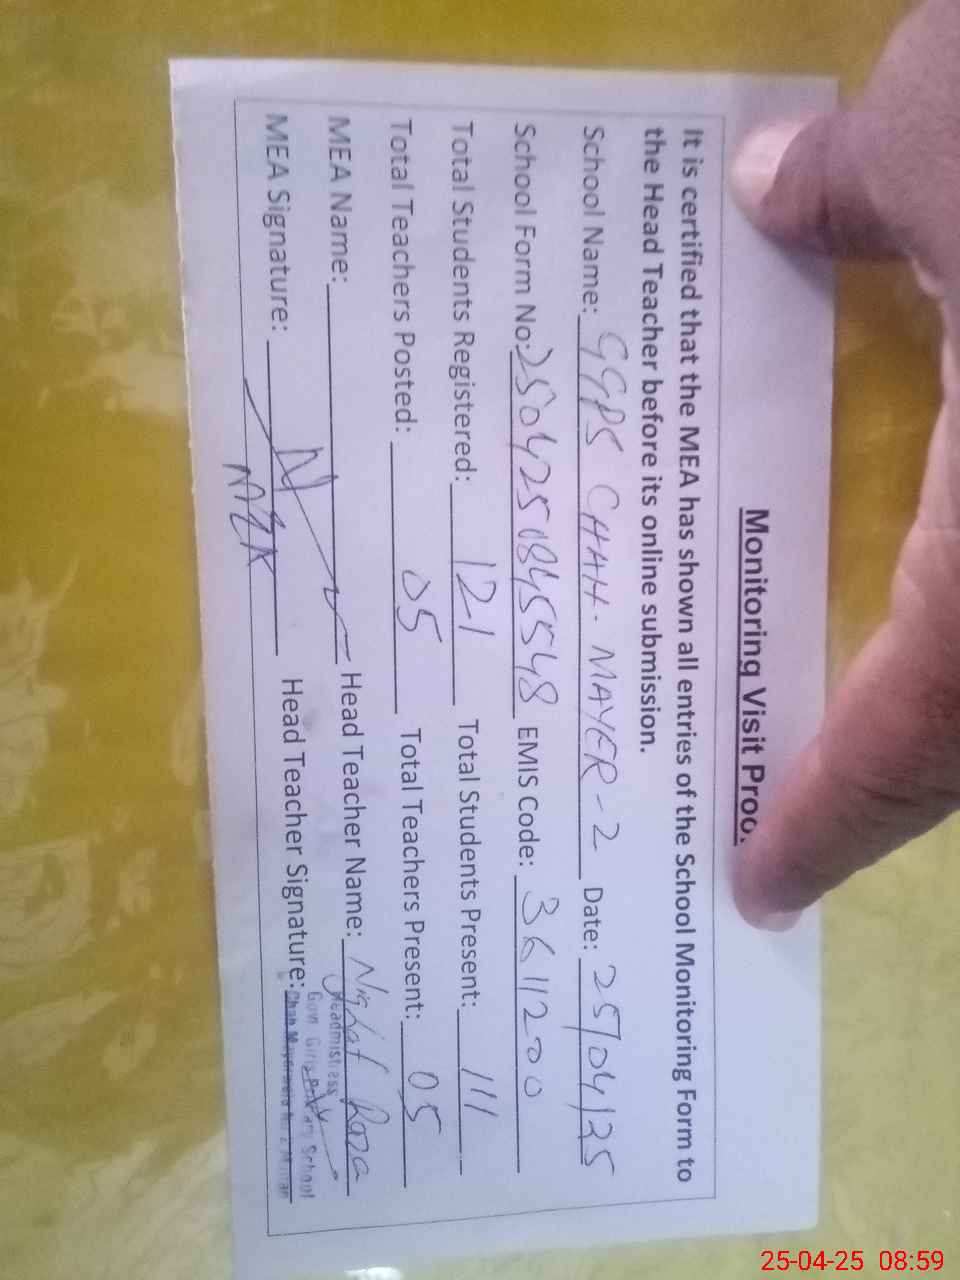 Monitoring Visit Proo
It is certified that the MEA has shown all entries of the School Monitoring Form to
the Head Teacher before its online submission.
School Name: GGPS CHAH. MAYER-2 Date: 25/04/25
School Form No: 250425084 5548 EMIS Code: 36111200
Total Students Registered: 121 Total Students Present: 111
Total Teachers Posted: 05 Total Teachers Present: 05
MEA Name: Head Teacher Name: Nighat Raza
MEA Signature: Head Teacher Signature:
Headmistress
Govt. Girls Primary School
Chah
25-04-25 08:59